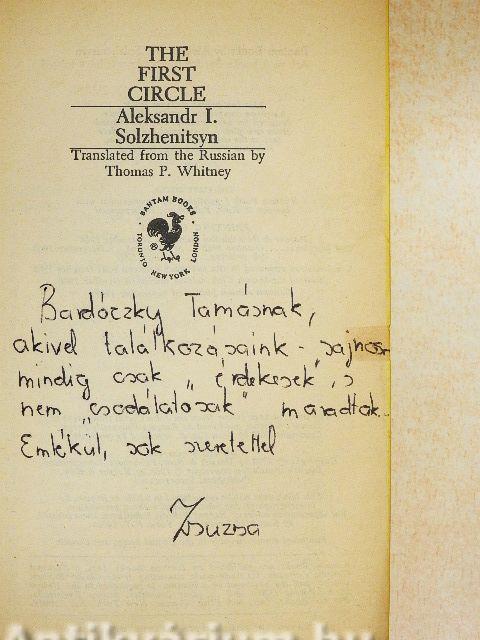 THE
FIRST
CIRCLE
Aleksandr I.
Solzhenitsyn
Translated from the Russian by
Thomas P. Whitney
BANTAM BOOKS
TORONTO · NEW YORK · LONDON
Bardóczky Tamásnak,
akivel találkozásaink - sajnos -
mindig csak „érdekesek", s
nem „csodálatosak" maradtak.
Emlékül, sok szeretettel
Zsuzsa
Antikvárium.hu